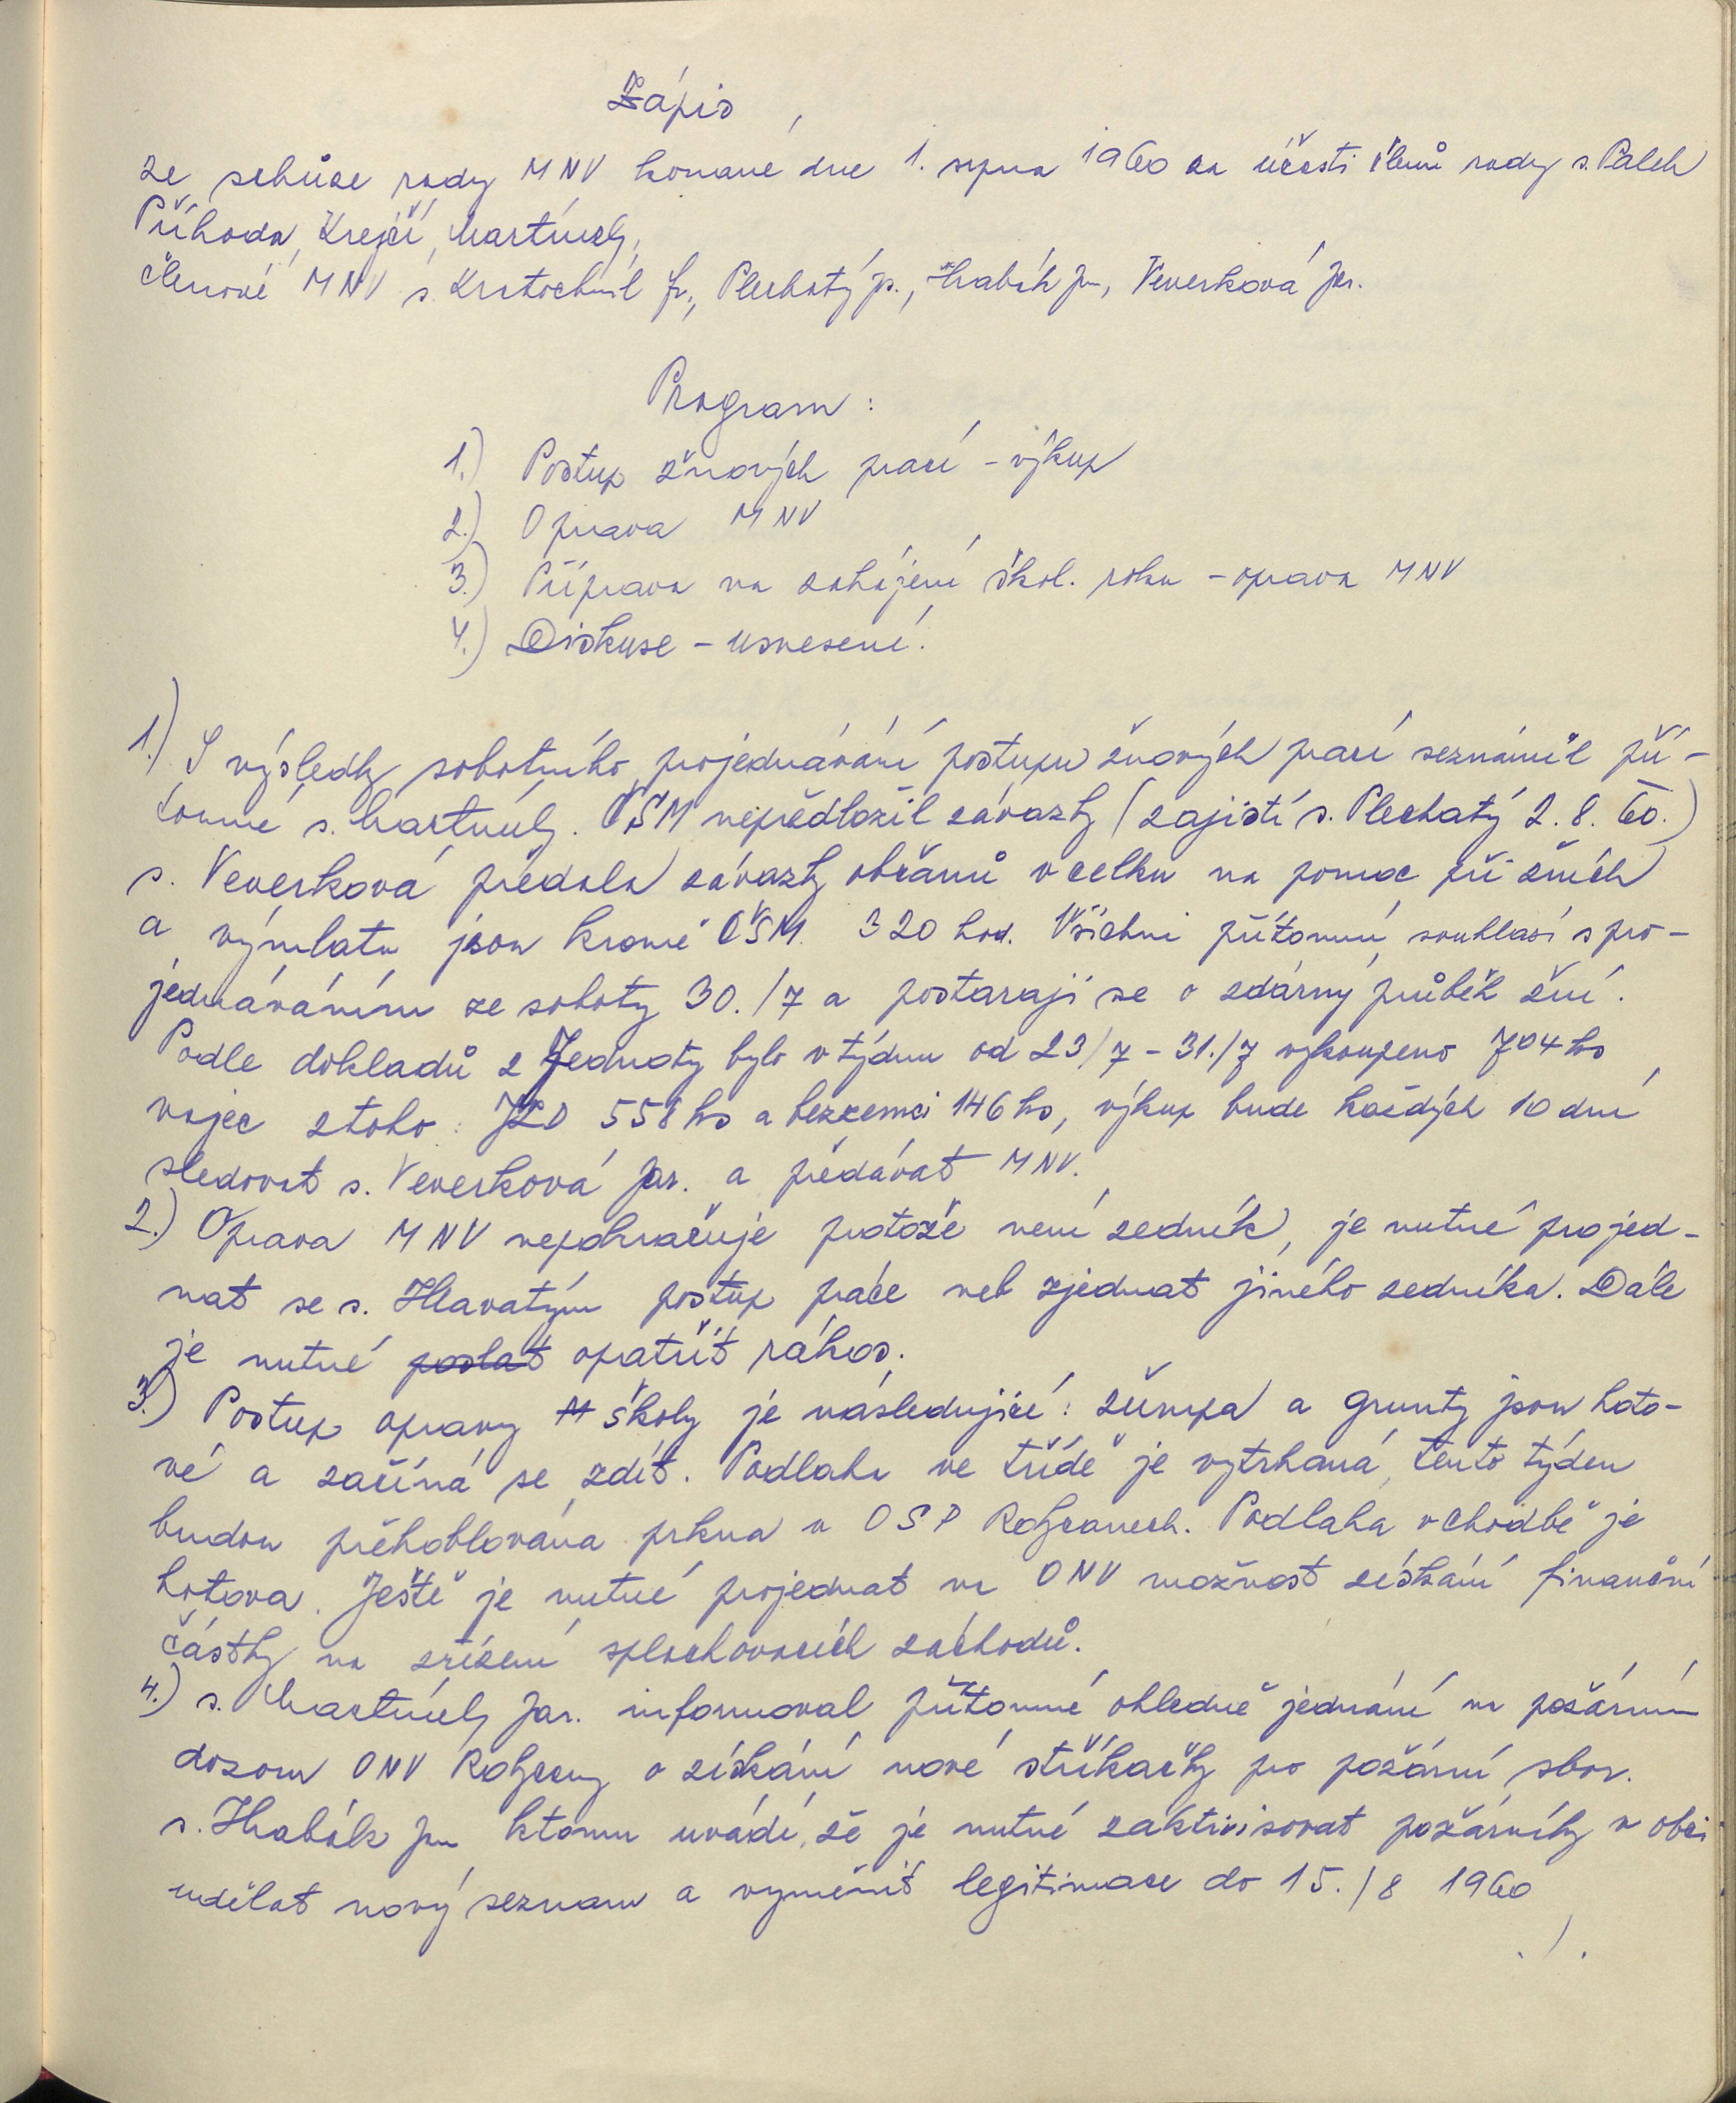 Zápis
ze schůze rady MNV konané dne 1. srpna 1960 za účasti členů rady s. Palek
Příhoda, Krejčí, Martínek,
členové MNV s. Kratochvíl fr., Plechatý js., Hrabák jn, Veverková jar.
Program:
1.) Postup žňových prací - výkup
2.) Oprava MNV
3.) Příprava na zahájení škol. roku - oprava MNV
4.) Diskuse - usnesení.
1.) S výsledky sobotního projednávání postupu žňových prací seznámil pří-
tomné s. Martínek. ČSM nepředložil závazky (zajistí s. Plechatý 2. 8. 60.)
s. Veverková předala závazky občanů v celku na pomoc při žních
a výmlatu jsou kromě ČSM. 320 hod. Všichni přítomní souhlasí s pro-
jednáváním ze soboty 30./7 a postarají se o zdárný průběh žní.
Podle dokladů z Jednoty bylo v týdnu od 23/7 - 31./7 vykoupeno 704 ks
vajec z toho: JZD 558 ks a bezzemci 146 ks, výkup bude každých 10 dní
sledovat s. Veverková jar. a předávat MNV.
2.) Oprava MNV nepokračuje protože není zedník, je nutné projed-
nat se s. Hlavatým postup práce neb zjednat jiného zedníka. Dále
je nutné poslat opatřit rákos.
3.) Postup opravy M školy je následující: žumpa a grunty jsou hoto-
vé a začíná se zdít. Podlaha ve třídě je vytrhaná, tento týden
budou přehoblována prkna v OSP Rokycanech. Podlaha v chodbě je
hotova. Ještě je nutné projednat na ONV možnost získání finanční
částky na zřízení splachovacích záchodů.
4.) s. Martínek jar. informoval přítomné ohledně jednání na požárním
dozoru ONV Rokycany o získání nové stříkačky pro požární sbor.
s. Hrabák jn k tomu uvádí, že je nutné zaktivisovat požárníky v obci
udělat nový seznam a vyměnit legitimace do 15./8 1960
./.